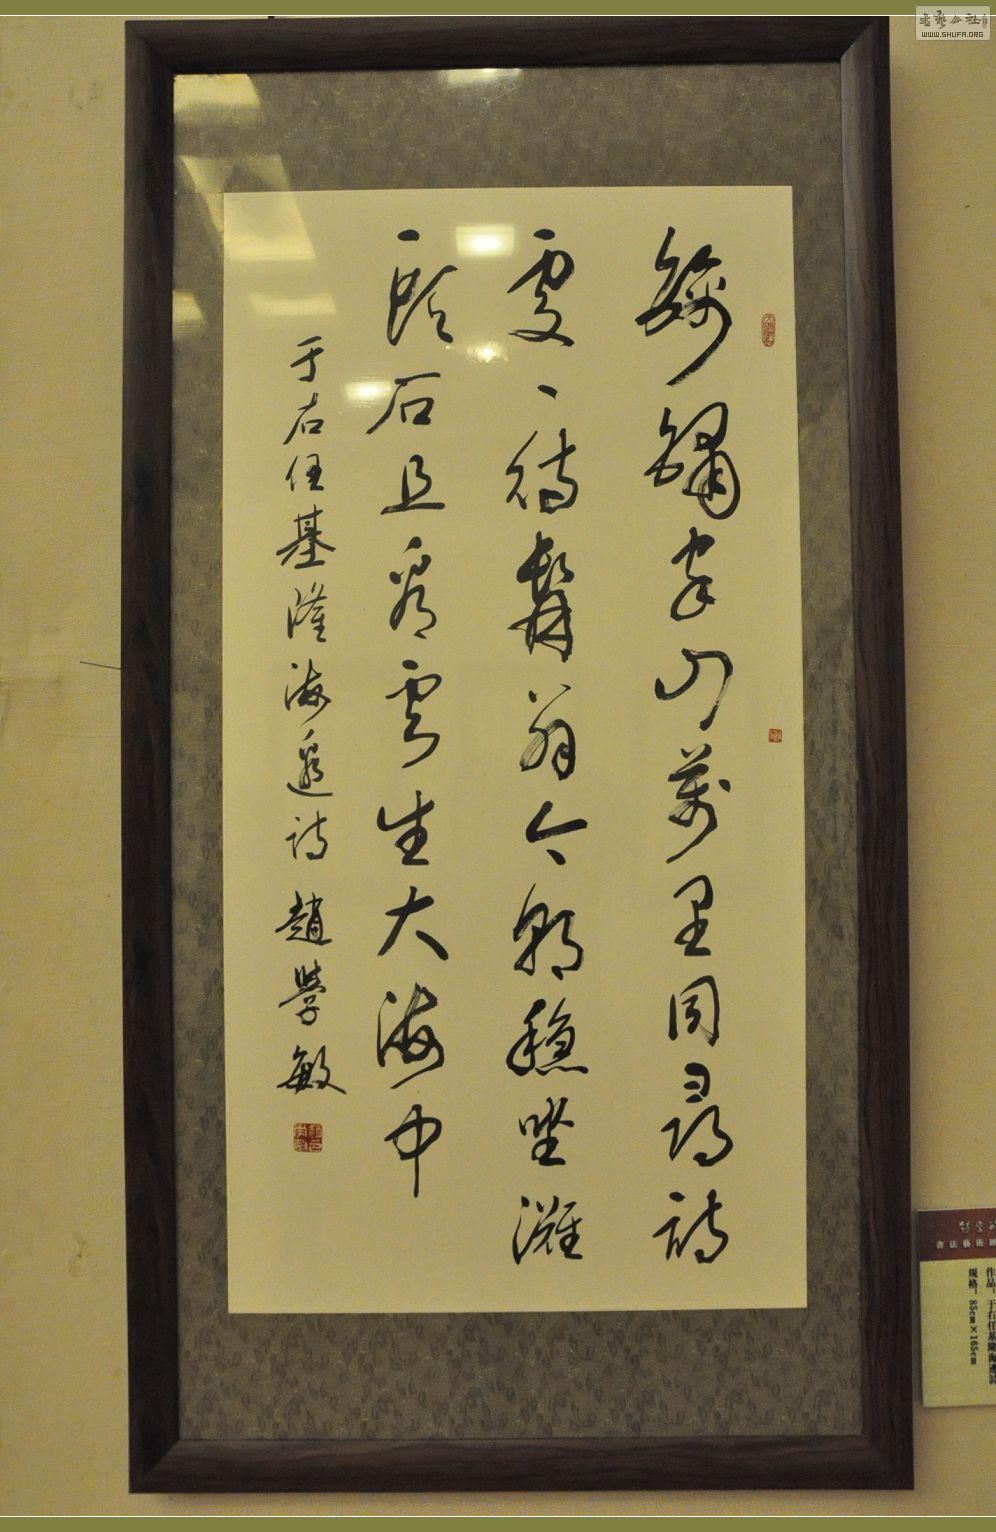 錦繡家山萬里同尋詩
處、待髯翁今朝穩坐灘
頭石且看雲生大海中
于右任基隆海邊詩 趙學敏
書法藝術
作品：于右任基隆海邊詩
規格：85cm×165cm
書藝公社
WWW.SHUFA.ORG